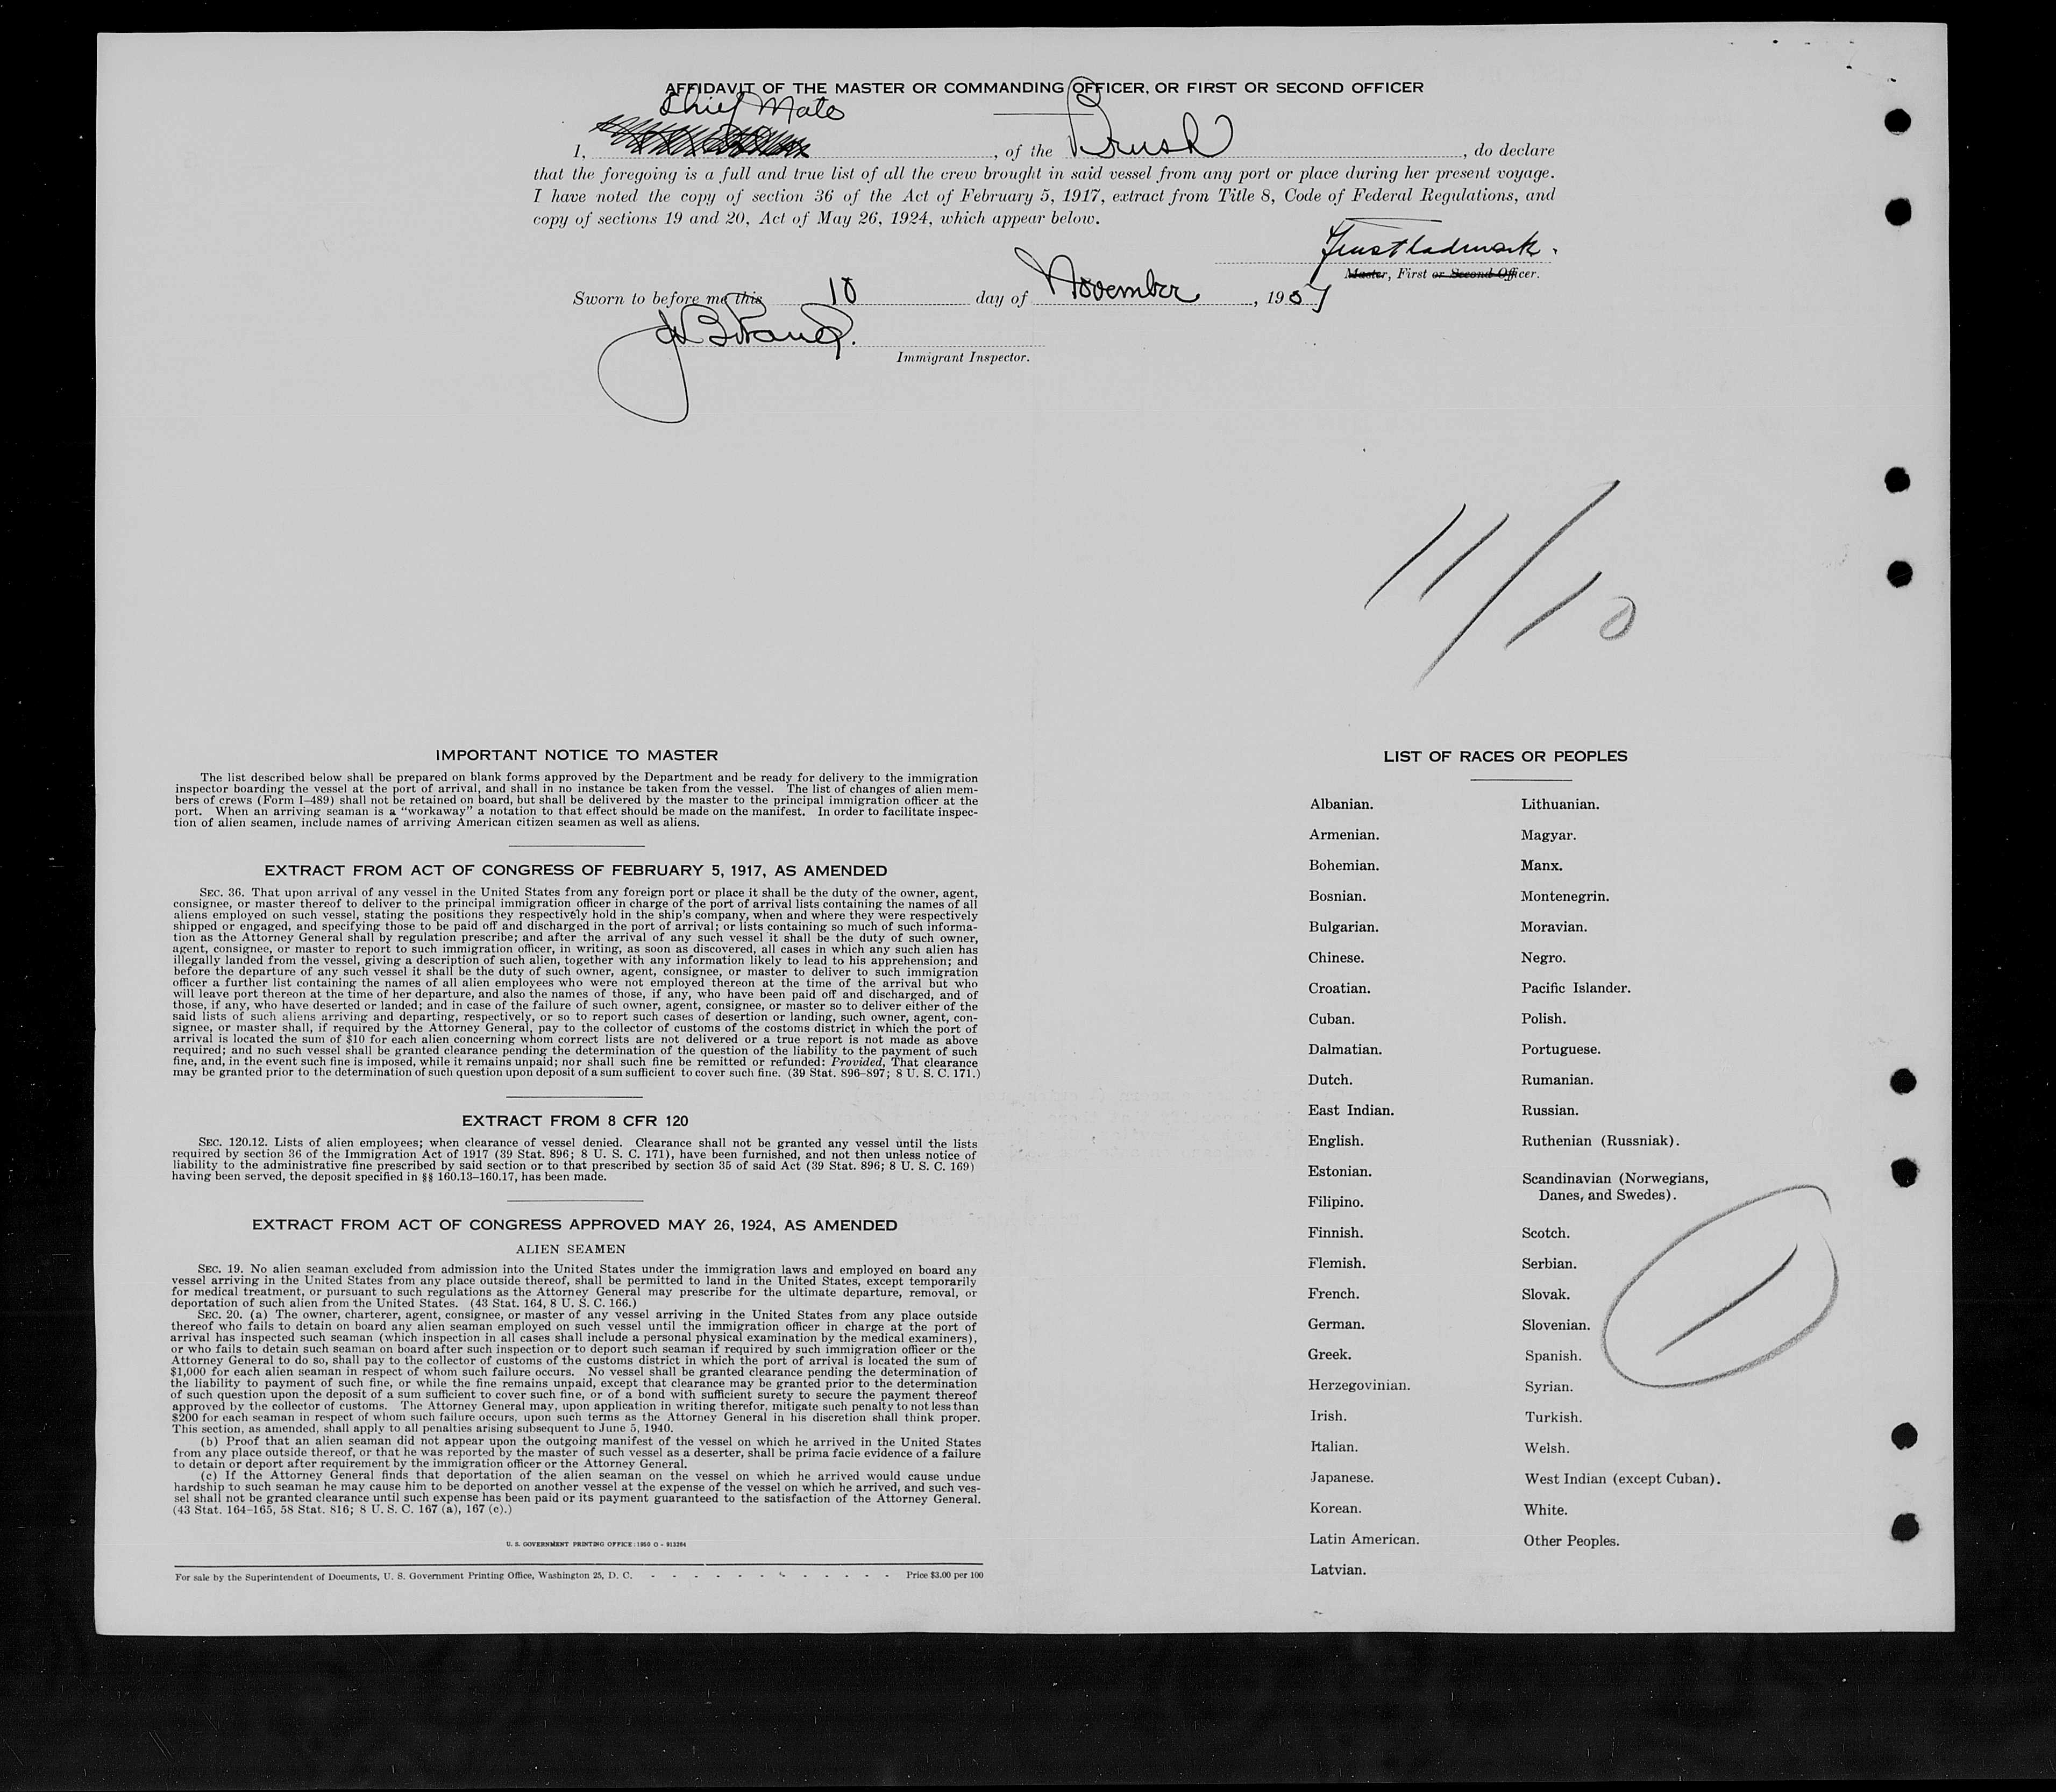 AFFIDAVIT OF THE MASTER OR COMMANDING OFFICER, OR FIRST OR SECOND OFFICER
Chief Mate
I, , of the Brush , do declare
that the foregoing is a full and true list of all the crew brought in said vessel from any port or place during her present voyage.
I have noted the copy of section 36 of the Act of February 5, 1917, extract from Title 8, Code of Federal Regulations, and
copy of sections 19 and 20, Act of May 26, 1924, which appear below.
Master, First or Second Officer.
Sworn to before me this 10 day of November , 195
Immigrant Inspector.
11/10
IMPORTANT NOTICE TO MASTER
The list described below shall be prepared on blank forms approved by the Department and be ready for delivery to the immigration
inspector boarding the vessel at the port of arrival, and shall in no instance be taken from the vessel. The list of changes of alien mem-
bers of crews (Form I-489) shall not be retained on board, but shall be delivered by the master to the principal immigration officer at the
port. When an arriving seaman is a "workaway" a notation to that effect should be made on the manifest. In order to facilitate inspec-
tion of alien seamen, include names of arriving American citizen seamen as well as aliens.
EXTRACT FROM ACT OF CONGRESS OF FEBRUARY 5, 1917, AS AMENDED
SEC. 36. That upon arrival of any vessel in the United States from any foreign port or place it shall be the duty of the owner, agent,
consignee, or master thereof to deliver to the principal immigration officer in charge of the port of arrival lists containing the names of all
aliens employed on such vessel, stating the positions they respectively hold in the ship's company, when and where they were respectively
shipped or engaged, and specifying those to be paid off and discharged in the port of arrival; or lists containing so much of such informa-
tion as the Attorney General shall by regulation prescribe; and after the arrival of any such vessel it shall be the duty of such owner,
agent, consignee, or master to report to such immigration officer, in writing, as soon as discovered, all cases in which any such alien has
illegally landed from the vessel, giving a description of such alien, together with any information likely to lead to his apprehension; and
before the departure of any such vessel it shall be the duty of such owner, agent, consignee, or master to deliver to such immigration
officer a further list containing the names of all alien employees who were not employed thereon at the time of the arrival but who
will leave port thereon at the time of her departure, and also the names of those, if any, who have been paid off and discharged, and of
those, if any, who have deserted or landed; and in case of the failure of such owner, agent, consignee, or master so to deliver either of the
said lists of such aliens arriving and departing, respectively, or so to report such cases of desertion or landing, such owner, agent, con-
signee, or master shall, if required by the Attorney General, pay to the collector of customs of the costoms district in which the port of
arrival is located the sum of $10 for each alien concerning whom correct lists are not delivered or a true report is not made as above
required; and no such vessel shall be granted clearance pending the determination of the question of the liability to the payment of such
fine, and, in the event such fine is imposed, while it remains unpaid; nor shall such fine be remitted or refunded: Provided, That clearance
may be granted prior to the determination of such question upon deposit of a sum sufficient to cover such fine. (39 Stat. 896-897; 8 U. S. C. 171.)
EXTRACT FROM 8 CFR 120
SEC. 120.12. Lists of alien employees; when clearance of vessel denied. Clearance shall not be granted any vessel until the lists
required by section 36 of the Immigration Act of 1917 (39 Stat. 896; 8 U. S. C. 171), have been furnished, and not then unless notice of
liability to the administrative fine prescribed by said section or to that prescribed by section 35 of said Act (39 Stat. 896; 8 U. S. C. 169)
having been served, the deposit specified in §§ 160.13-160.17, has been made.
EXTRACT FROM ACT OF CONGRESS APPROVED MAY 26, 1924, AS AMENDED
ALIEN SEAMEN
SEC. 19. No alien seaman excluded from admission into the United States under the immigration laws and employed on board any
vessel arriving in the United States from any place outside thereof, shall be permitted to land in the United States, except temporarily
for medical treatment, or pursuant to such regulations as the Attorney General may prescribe for the ultimate departure, removal, or
deportation of such alien from the United States. (43 Stat. 164, 8 U. S. C. 166.)
SEC. 20. (a) The owner, charterer, agent, consignee, or master of any vessel arriving in the United States from any place outside
thereof who fails to detain on board any alien seaman employed on such vessel until the immigration officer in charge at the port of
arrival has inspected such seaman (which inspection in all cases shall include a personal physical examination by the medical examiners),
or who fails to detain such seaman on board after such inspection or to deport such seaman if required by such immigration officer or the
Attorney General to do so, shall pay to the collector of customs of the customs district in which the port of arrival is located the sum of
$1,000 for each alien seaman in respect of whom such failure occurs. No vessel shall be granted clearance pending the determination of
the liability to payment of such fine, or while the fine remains unpaid, except that clearance may be granted prior to the determination
of such question upon the deposit of a sum sufficient to cover such fine, or of a bond with sufficient surety to secure the payment thereof
approved by the collector of customs. The Attorney General may, upon application in writing therefor, mitigate such penalty to not less than
$200 for each seaman in respect of whom such failure occurs, upon such terms as the Attorney General in his discretion shall think proper.
This section, as amended, shall apply to all penalties arising subsequent to June 5, 1940.
(b) Proof that an alien seaman did not appear upon the outgoing manifest of the vessel on which he arrived in the United States
from any place outside thereof, or that he was reported by the master of such vessel as a deserter, shall be prima facie evidence of a failure
to detain or deport after requirement by the immigration officer or the Attorney General.
(c) If the Attorney General finds that deportation of the alien seaman on the vessel on which he arrived would cause undue
hardship to such seaman he may cause him to be deported on another vessel at the expense of the vessel on which he arrived, and such ves-
sel shall not be granted clearance until such expense has been paid or its payment guaranteed to the satisfaction of the Attorney General.
(43 Stat. 164-165, 58 Stat. 816; 8 U. S. C. 167 (a), 167 (c).)
U. S. GOVERNMENT PRINTING OFFICE: 1950 O - 913264
For sale by the Superintendent of Documents, U. S. Government Printing Office, Washington 25, D. C. - - - - - - - - - - - - Price $3.00 per 100
LIST OF RACES OR PEOPLES
Albanian.
Armenian.
Bohemian.
Bosnian.
Bulgarian.
Chinese.
Croatian.
Cuban.
Dalmatian.
Dutch.
East Indian.
English.
Estonian.
Filipino.
Finnish.
Flemish.
French.
German.
Greek.
Herzegovinian.
Irish.
Italian.
Japanese.
Korean.
Latin American.
Latvian.
Lithuanian.
Magyar.
Manx.
Montenegrin.
Moravian.
Negro.
Pacific Islander.
Polish.
Portuguese.
Rumanian.
Russian.
Ruthenian (Russniak).
Scandinavian (Norwegians,
Danes, and Swedes).
Scotch.
Serbian.
Slovak.
Slovenian.
Spanish.
Syrian.
Turkish.
Welsh.
West Indian (except Cuban).
White.
Other Peoples.
1